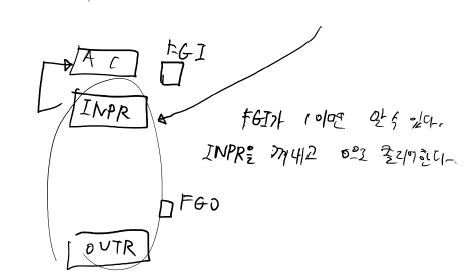 AC FGI
INPR
FGI가 1이면 알 수 있다.
INPR을 꺼내고 0으로 클리어한다.
FGO
OUTR